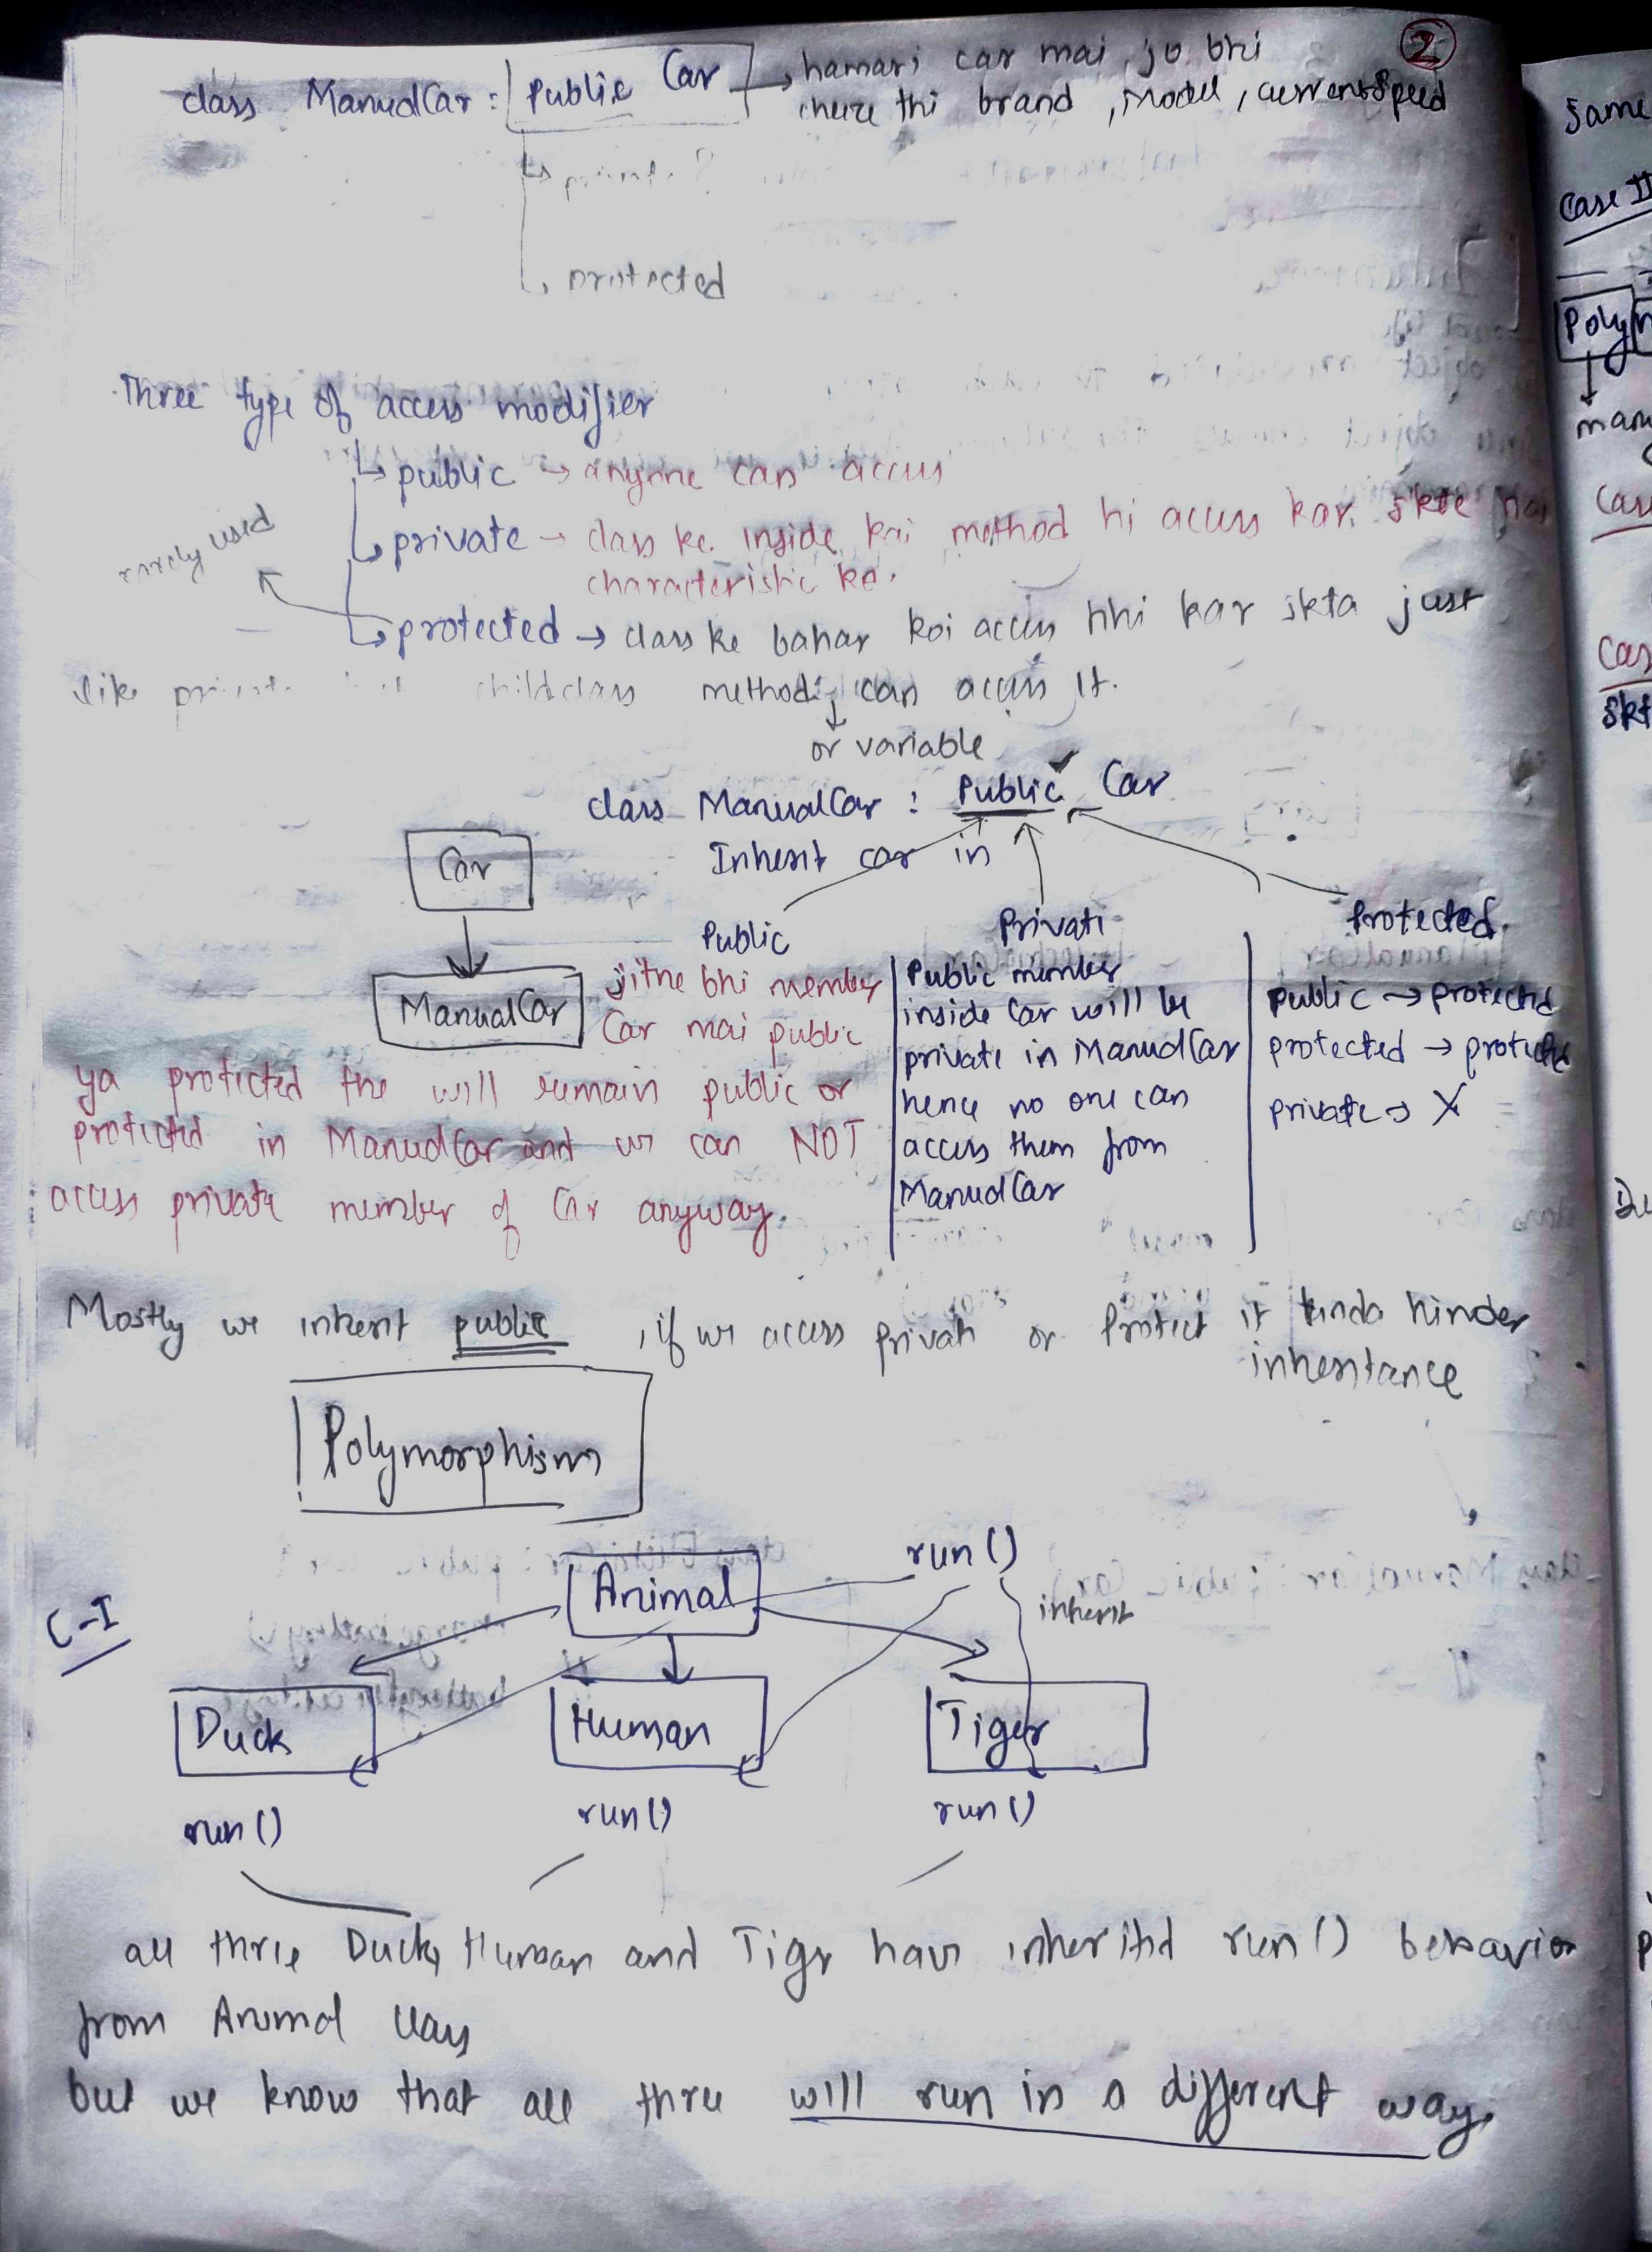 2
class ManualCar : Public Car → hamari car mai jo bhi
cheeze thi brand, Model, currentSpeed
↳ private ?
↳ protected
Three type of access modifier
↳ public → anyone can access
↳ private → class ke inside kai method hi access kar skte hai
characteristic ko.
rarely used
↳ protected → class ke bahar koi access nhi kar skta just
like private childclass methods can access it.
↓
or variable
class ManualCar : Public ✓ Car
Inherit car in
Car
ManualCar
Public
jitne bhi member
Car mai public
ya protected the will remain public or
protected in ManualCar and we can NOT
access private member of Car anyway.
Private
Public member
inside Car will be
private in ManualCar
hence no one can
access them from
ManualCar
Protected
public → protected
protected → protected
private → X
Mostly we inherit public , if we access private or Protect it kinda hinder
inheritance
Polymorphism
C-I
Animal
run()
inherit
Duck Human Tiger
run() run() run()
all three Duck, Human and Tiger have inherited run() behavior
from Animal class
but we know that all three will run in a different way.
Same
Case II
Poly
man
Cas
Cas
skt